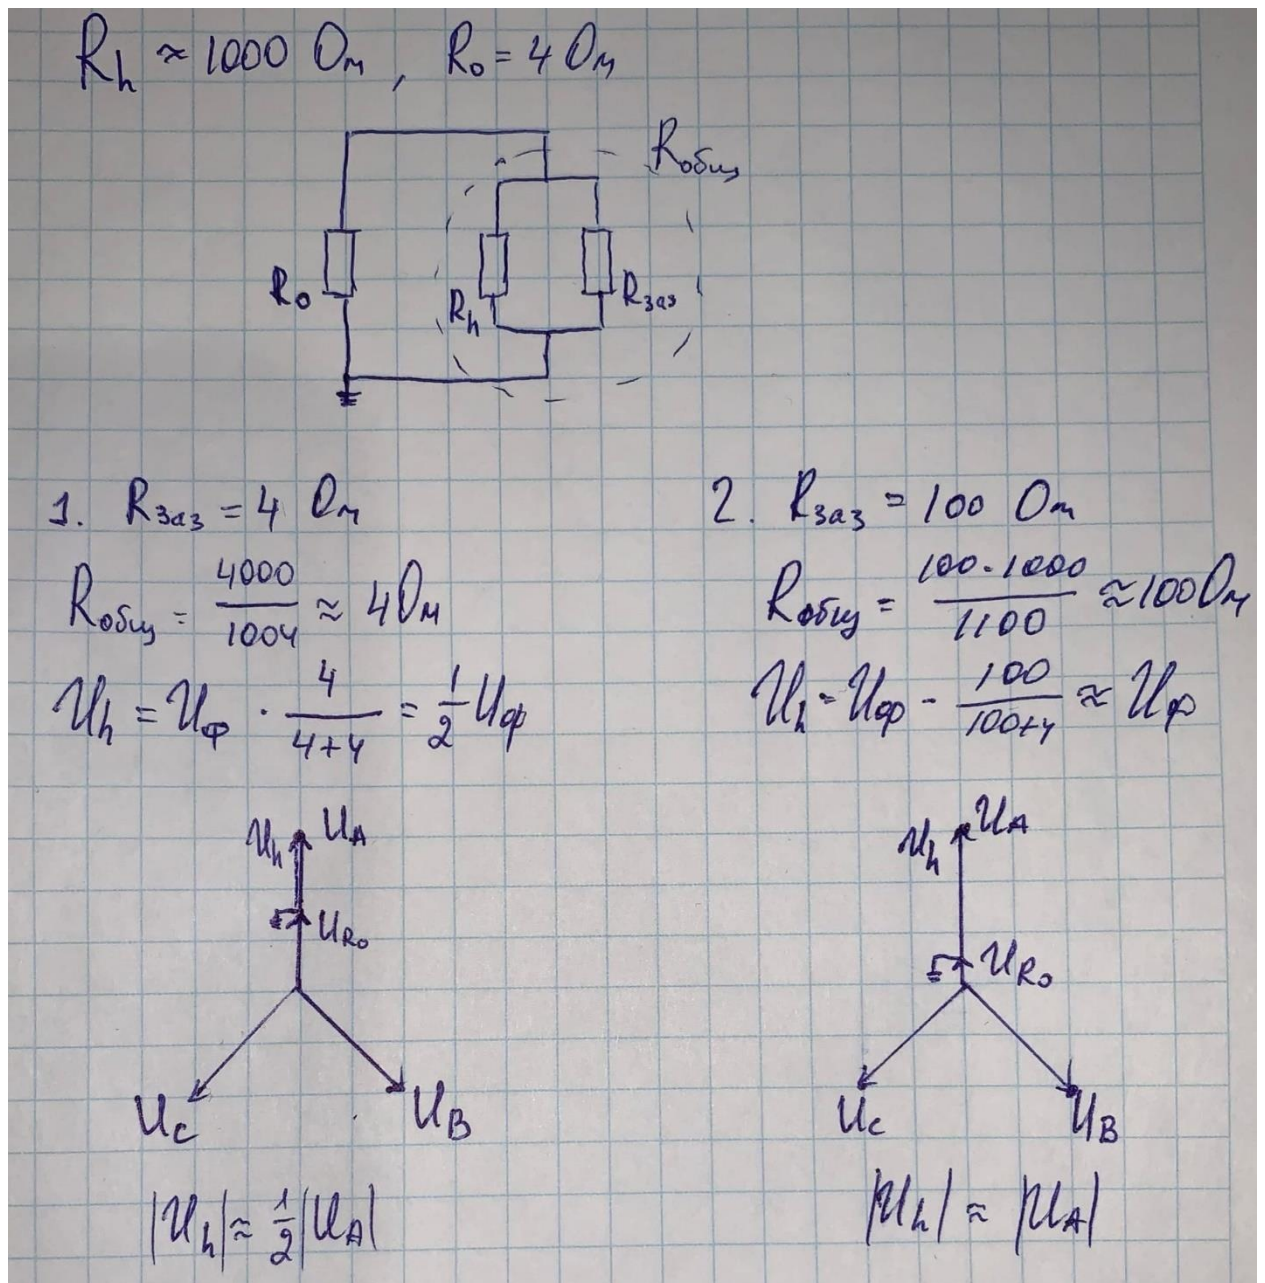 Rh ≈ 1000 Ом, R0 = 4 Ом
Rобщ
R0
Rh
Rзаз
1. Rзаз = 4 Ом
Rобщ = 4000/1004 ≈ 4 Ом
Uh = Uф · 4/(4+4) = 1/2 Uф
Uh UA
UR0
UC
UB
|Uh| ≈ 1/2 |UA|
2. Rзаз = 100 Ом
Rобщ = 100·1000/1100 ≈ 100 Ом
Uh = Uф · 100/(100+4) ≈ Uф
Uh UA
UR0
UC
UB
|Uh| ≈ |UA|